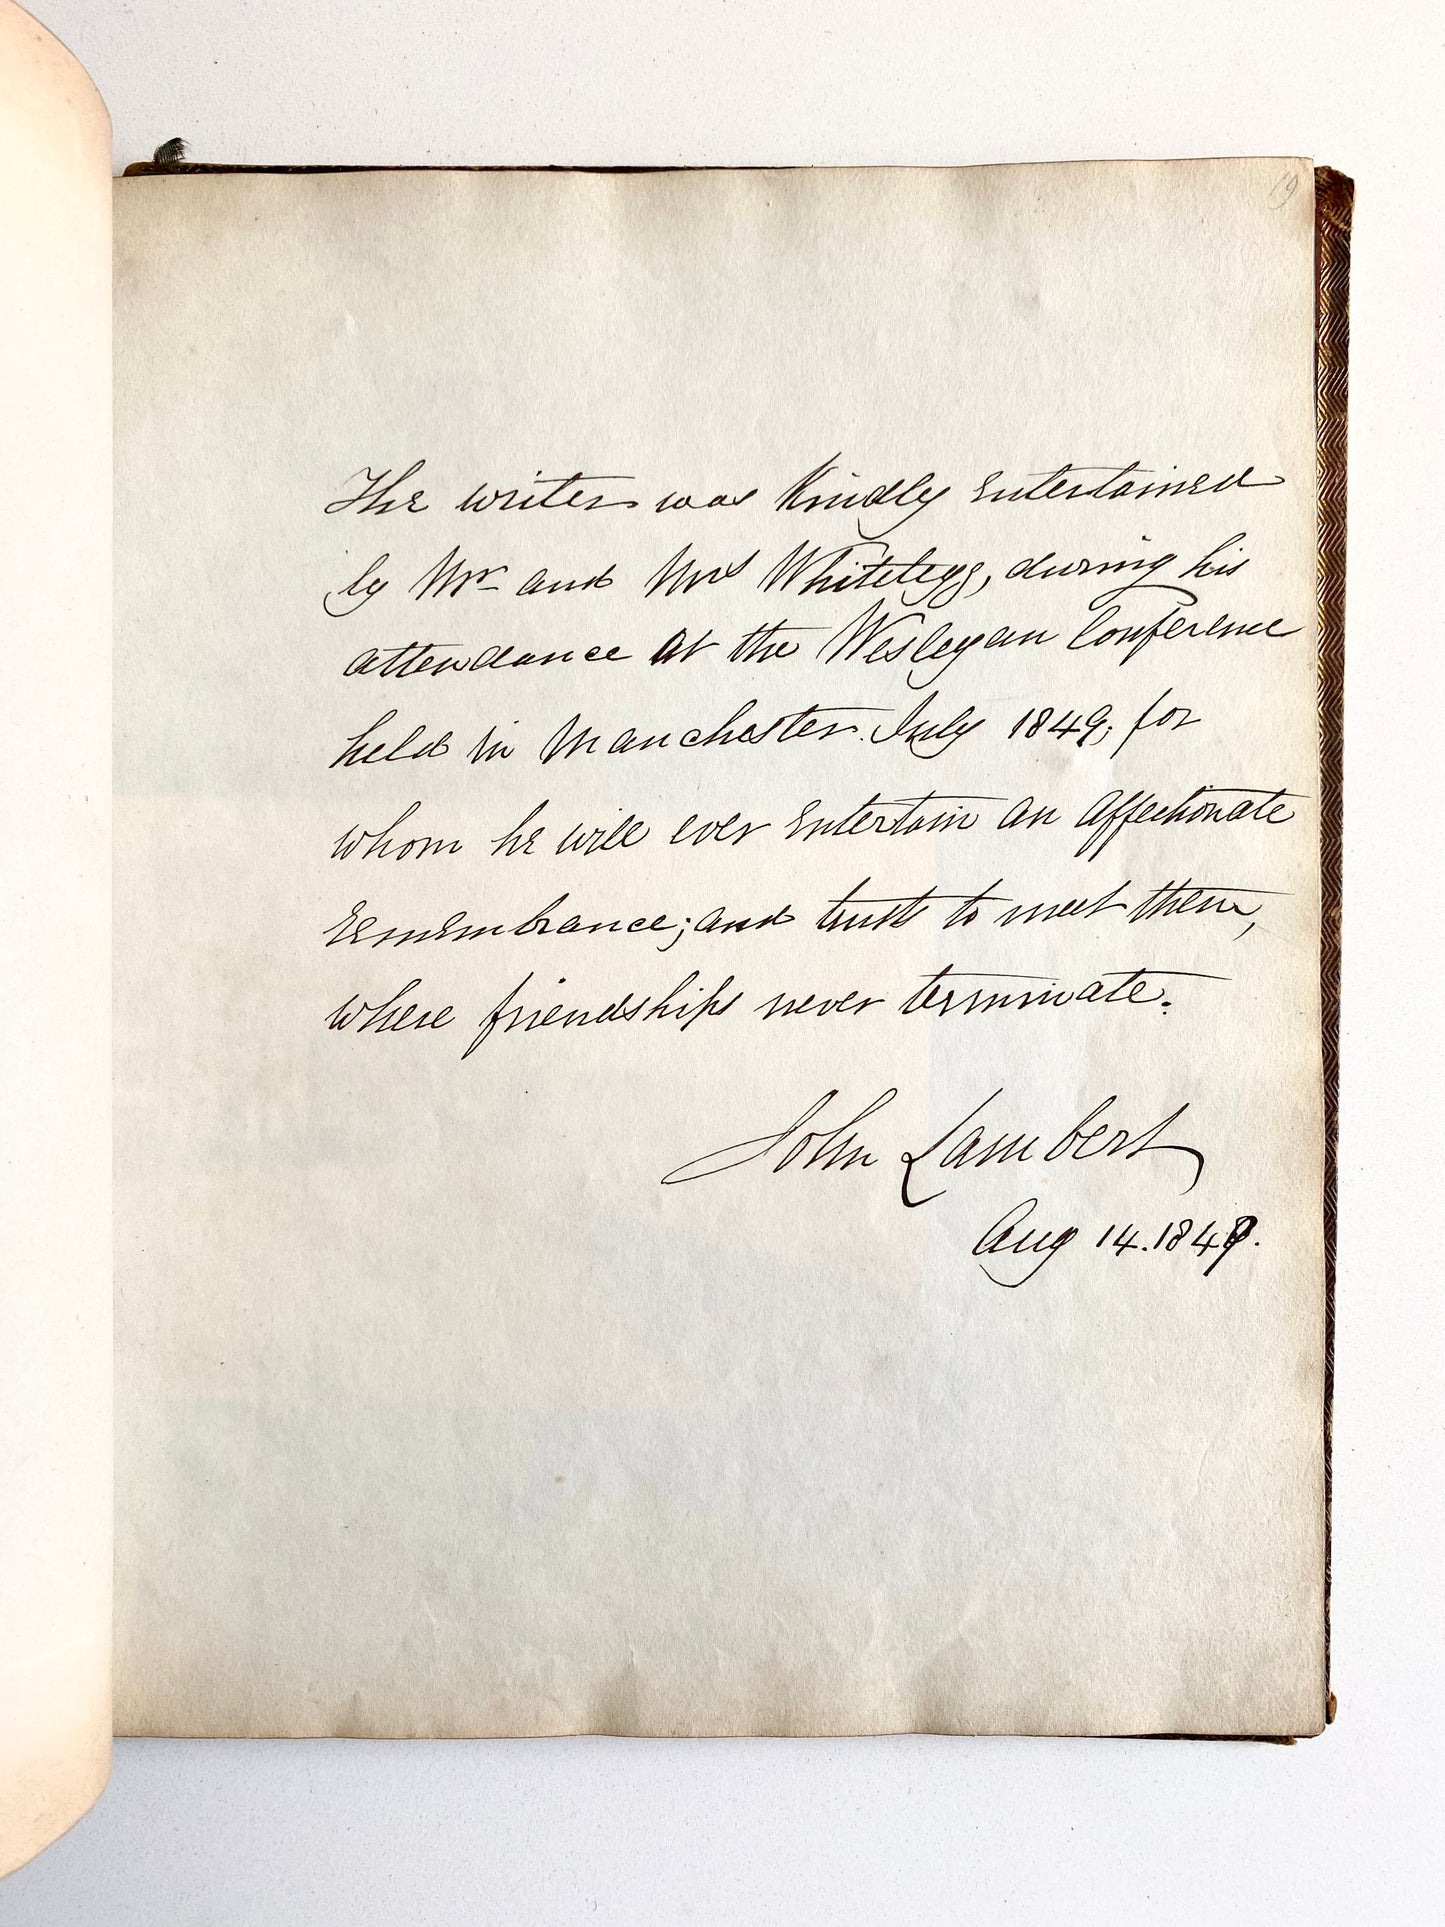 19
The writer was kindly entertained
by Mr and Mrs Whitelegg, during his
attendance at the Wesleyan Conference
held in Manchester July 1849; for
whom he will ever entertain an affectionate
remembrance; and trusts to meet them,
where friendships never terminate.
John Lambert
Aug 14. 1849.